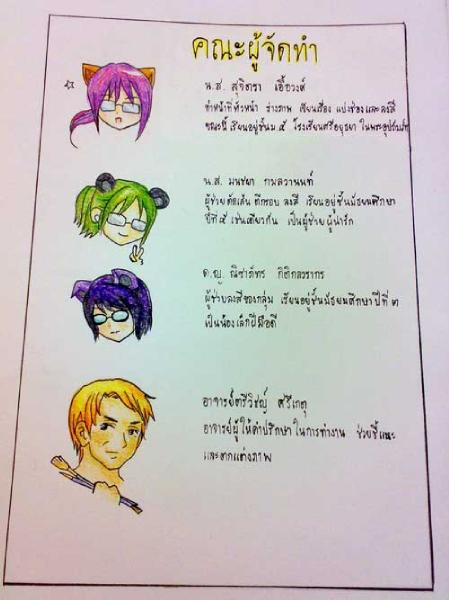 คณะผู้จัดทำ
น.ส. สุจิตรา เอื้อวงศ์
ทำหน้าที่หัวหน้า ร่างภาพ เขียนเรื่อง แบ่งช่องและลงสี
ขณะนี้ เรียนอยู่ชั้นม.๕ โรงเรียนศรีอยุธยา ในพระอุปถัมภ์ฯ
น.ส. มนชยา กมลวานนท์
ผู้ช่วยตัดเส้น ตีกรอบ ลงสี เรียนอยู่ชั้นมัธยมศึกษา
ปีที่ ๕ เช่นเดียวกัน เป็นผู้ช่วยผู้น่ารัก
ด.ญ.
ผู้ช่วยลงสีของกลุ่ม เรียนอยู่ชั้นมัธยมศึกษาปีที่ ๓
เป็นน้องเล็กฝีมือดี
อาจารย์ตรีวิชญ์ ศรีเกตุ
อาจารย์ผู้ให้คำปรึกษาในการทำงาน ช่วยชี้แนะ
และตกแต่งภาพ